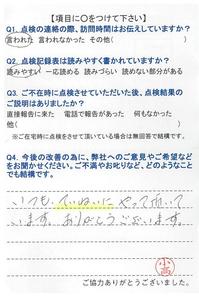 【項目に○をつけて下さい】
Q1. 点検の連絡の際、訪問時間はお伝えしていますか？
言われた 言われなかった その他（　　　）
Q2. 点検記録表は読みやすく書かれていますか？
読みやすい 一応読める 読みづらい 読めない部分がある
Q3. ご不在時に点検させていただいた後、点検結果の
ご説明はありましたか？
直接あった 電話で報告があった 何もなかった
他（　　　）
※ご在宅時に点検をさせて頂いている場合は無回答で結構です。
Q4. 今後の改善の為に、弊社へのご意見やご希望など
をお聞かせください。ご不満やお叱りなど、どのようなこと
でも結構です。
いつも、ていねいに やって頂いて
います。ありがとうございます。
小高
ご協力ありがとうございました。